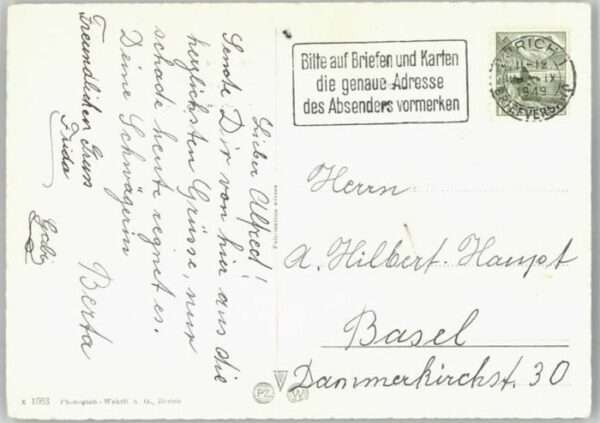 Lieber Alfred!
Sende Dir von hier aus die
herzlichsten Grüsse, nur
schade heute regnet es.
Deine Schwägerin
Berta
Freundlichen Gruss
Frida
Bitte auf Briefen und Karten
die genaue Adresse
des Absenders vormerken
ZÜRICH 1
11-12
IX
1949
BRIEFVERSAND
Herrn
A. Hilbert-Haupt
Basel
Dammerkirchst. 30
PZ
W
K 1053 Photogr.-Wehrli A. G., Zürich